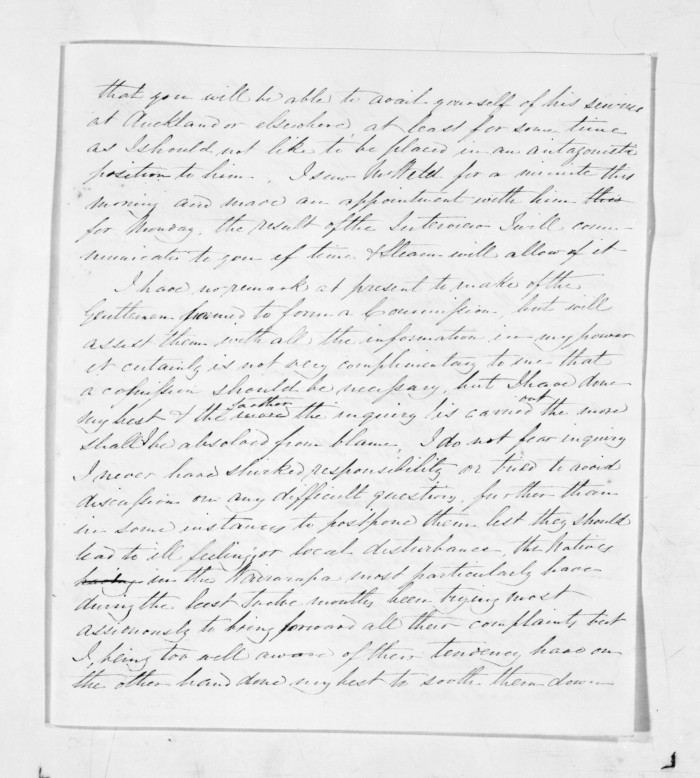 that you will be able to avail yourself of his services
at Auckland or elsewhere, at least for some time
as I should not like to be placed in an antagonistic
position to him. I saw Mr Weld for a minute this
morning and made an appointment with him this
for Monday, the result of the Interview I will com-
municate to you if time & Steam will allow of it
I have no remark at present to make of the
Gentlemen named to form a Commission, but will
assist them with all the information in my power
it certainly is not very complimentary to me that
a commission should be necessary, but I have done
my best & the more further the inquiry is carried out the more
shall I be absolved from blame, I do not fear inquiry
I never have shirked responsibility or tried to avoid
discussion on any difficult question, further than
in some instances to postpone them lest they should
lead to ill feeling or local disturbance, the Natives
having in the Wairarapa most particularly have
during the last twelve months been trying most
assiduously to bring forward all their complaints, but
I, being too well aware of their tendency, have on
the other hand done my best to sooth them down